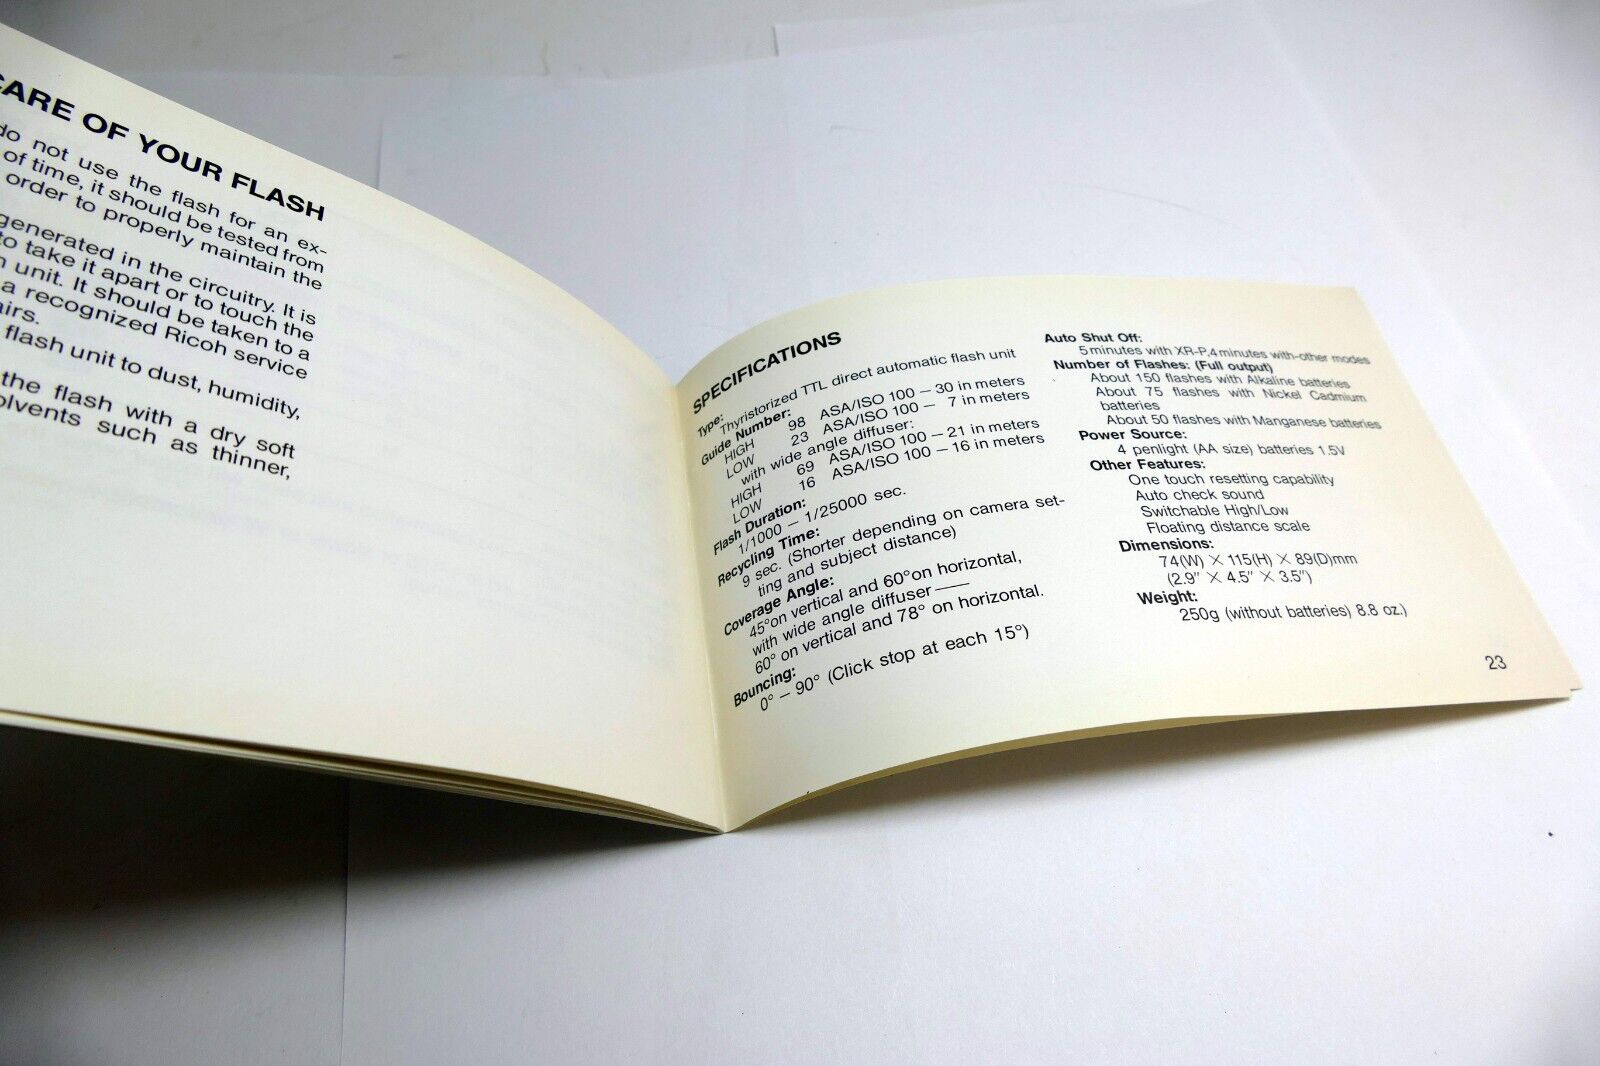 CARE OF YOUR FLASH
do not use the flash for an ex-
of time, it should be tested from
order to properly maintain the
generated in the circuitry. It is
to take it apart or to touch the
unit. It should be taken to a
a recognized Ricoh service
flash unit to dust, humidity,
the flash with a dry soft
such as thinner,
SPECIFICATIONS
Type:
Thyristorized TTL direct automatic flash unit
Guide Number:
HIGH 98 ASA/ISO 100 – 30 in meters
LOW 23 ASA/ISO 100 – 7 in meters
with wide angle diffuser:
HIGH 69 ASA/ISO 100 – 21 in meters
LOW 16 ASA/ISO 100 – 16 in meters
Flash Duration:
1/1000 – 1/25000 sec.
Recycling Time:
9 sec. (Shorter depending on camera set-
ting and subject distance)
Coverage Angle:
45° on vertical and 60° on horizontal,
with wide angle diffuser ——
60° on vertical and 78° on horizontal.
Bouncing:
0° – 90° (Click stop at each 15°)
Auto Shut Off:
5 minutes with XR-P, 4 minutes with-other modes
Number of Flashes: (Full output)
About 150 flashes with Alkaline batteries
About 75 flashes with Nickel Cadmium
batteries
About 50 flashes with Manganese batteries
Power Source:
4 penlight (AA size) batteries 1.5V
Other Features:
One touch resetting capability
Auto check sound
Switchable High/Low
Floating distance scale
Dimensions:
74(W) × 115(H) × 89(D)mm
(2.9″ × 4.5″ × 3.5″)
Weight:
250g (without batteries) 8.8 oz.)
23